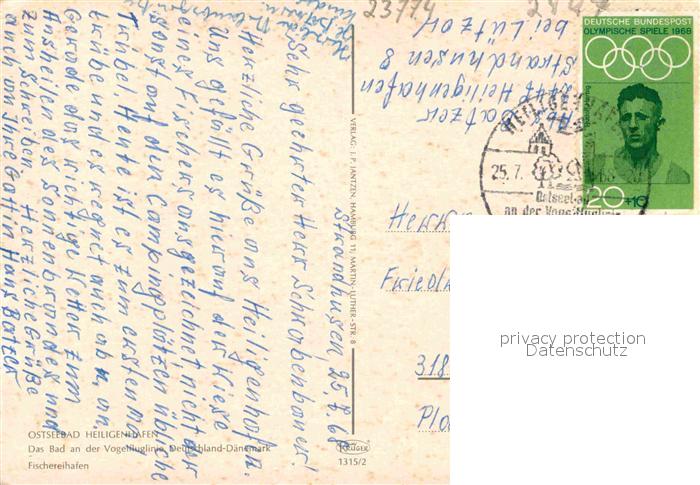 Strandhusen 25.7.68
Sehr geehrter Herr Schwabenbauer!
Herzliche Grüße aus Heiligenhafen.
Uns gefällt es hier auf der Wiese
eines Fischers ausgezeichnet, nicht der
sonst auf den Campingplätzen übliche
Trubel. Heute ist es zum ersten Mal
trübe und regnet auch ab u. an.
Gerade das richtige Wetter zum
Ausheilen des Sonnenbrandes und
zum Schreiben. Herzliche Grüße
auch von Ihre Gattin Hans Batzer
23774
2447
Abs. Batzer
2447 Heiligenhafen
Strandhusen 8
bei Lützow
DEUTSCHE BUNDESPOST
OLYMPISCHE SPIELE 1968
20+10
HEILIGENHAFEN
25.7.
Ostseebad
an der Vogelfluglinie
VERLAG: J. P. JANTZEN, HAMBURG 11, MARTIN-LUTHER-STR. 8
Herrn
318
privacy protection
Datenschutz
OSTSEEBAD HEILIGENHAFEN
Das Bad an der Vogelfluglinie Deutschland-Dänemark
Fischereihafen
KRÜGER
1315/2